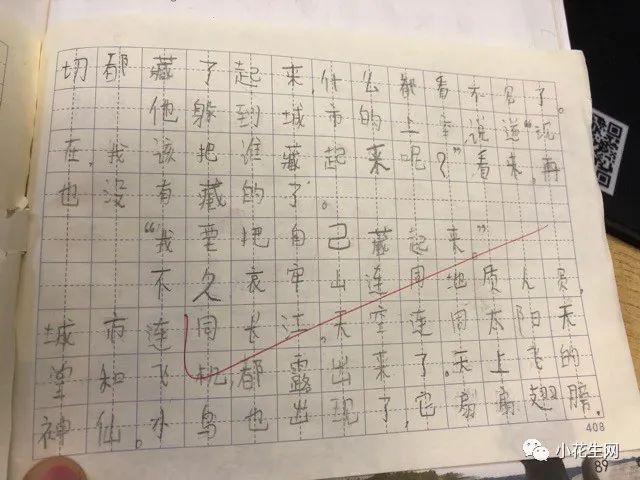 切都藏了起来,什么都看不见了。
他躲到城市的上空说道“现
在,我该把谁藏起来呢?”看来,再
也没有藏的了。
“我要把自己藏起来。”
不久哀牢山连同地质人员,
城市连同长江,天空连同太阳天
堂和飞机,都露出来了。天上飞的
神仙。小鸟也出现了,它扇扇翅膀,
408
89
小花生网